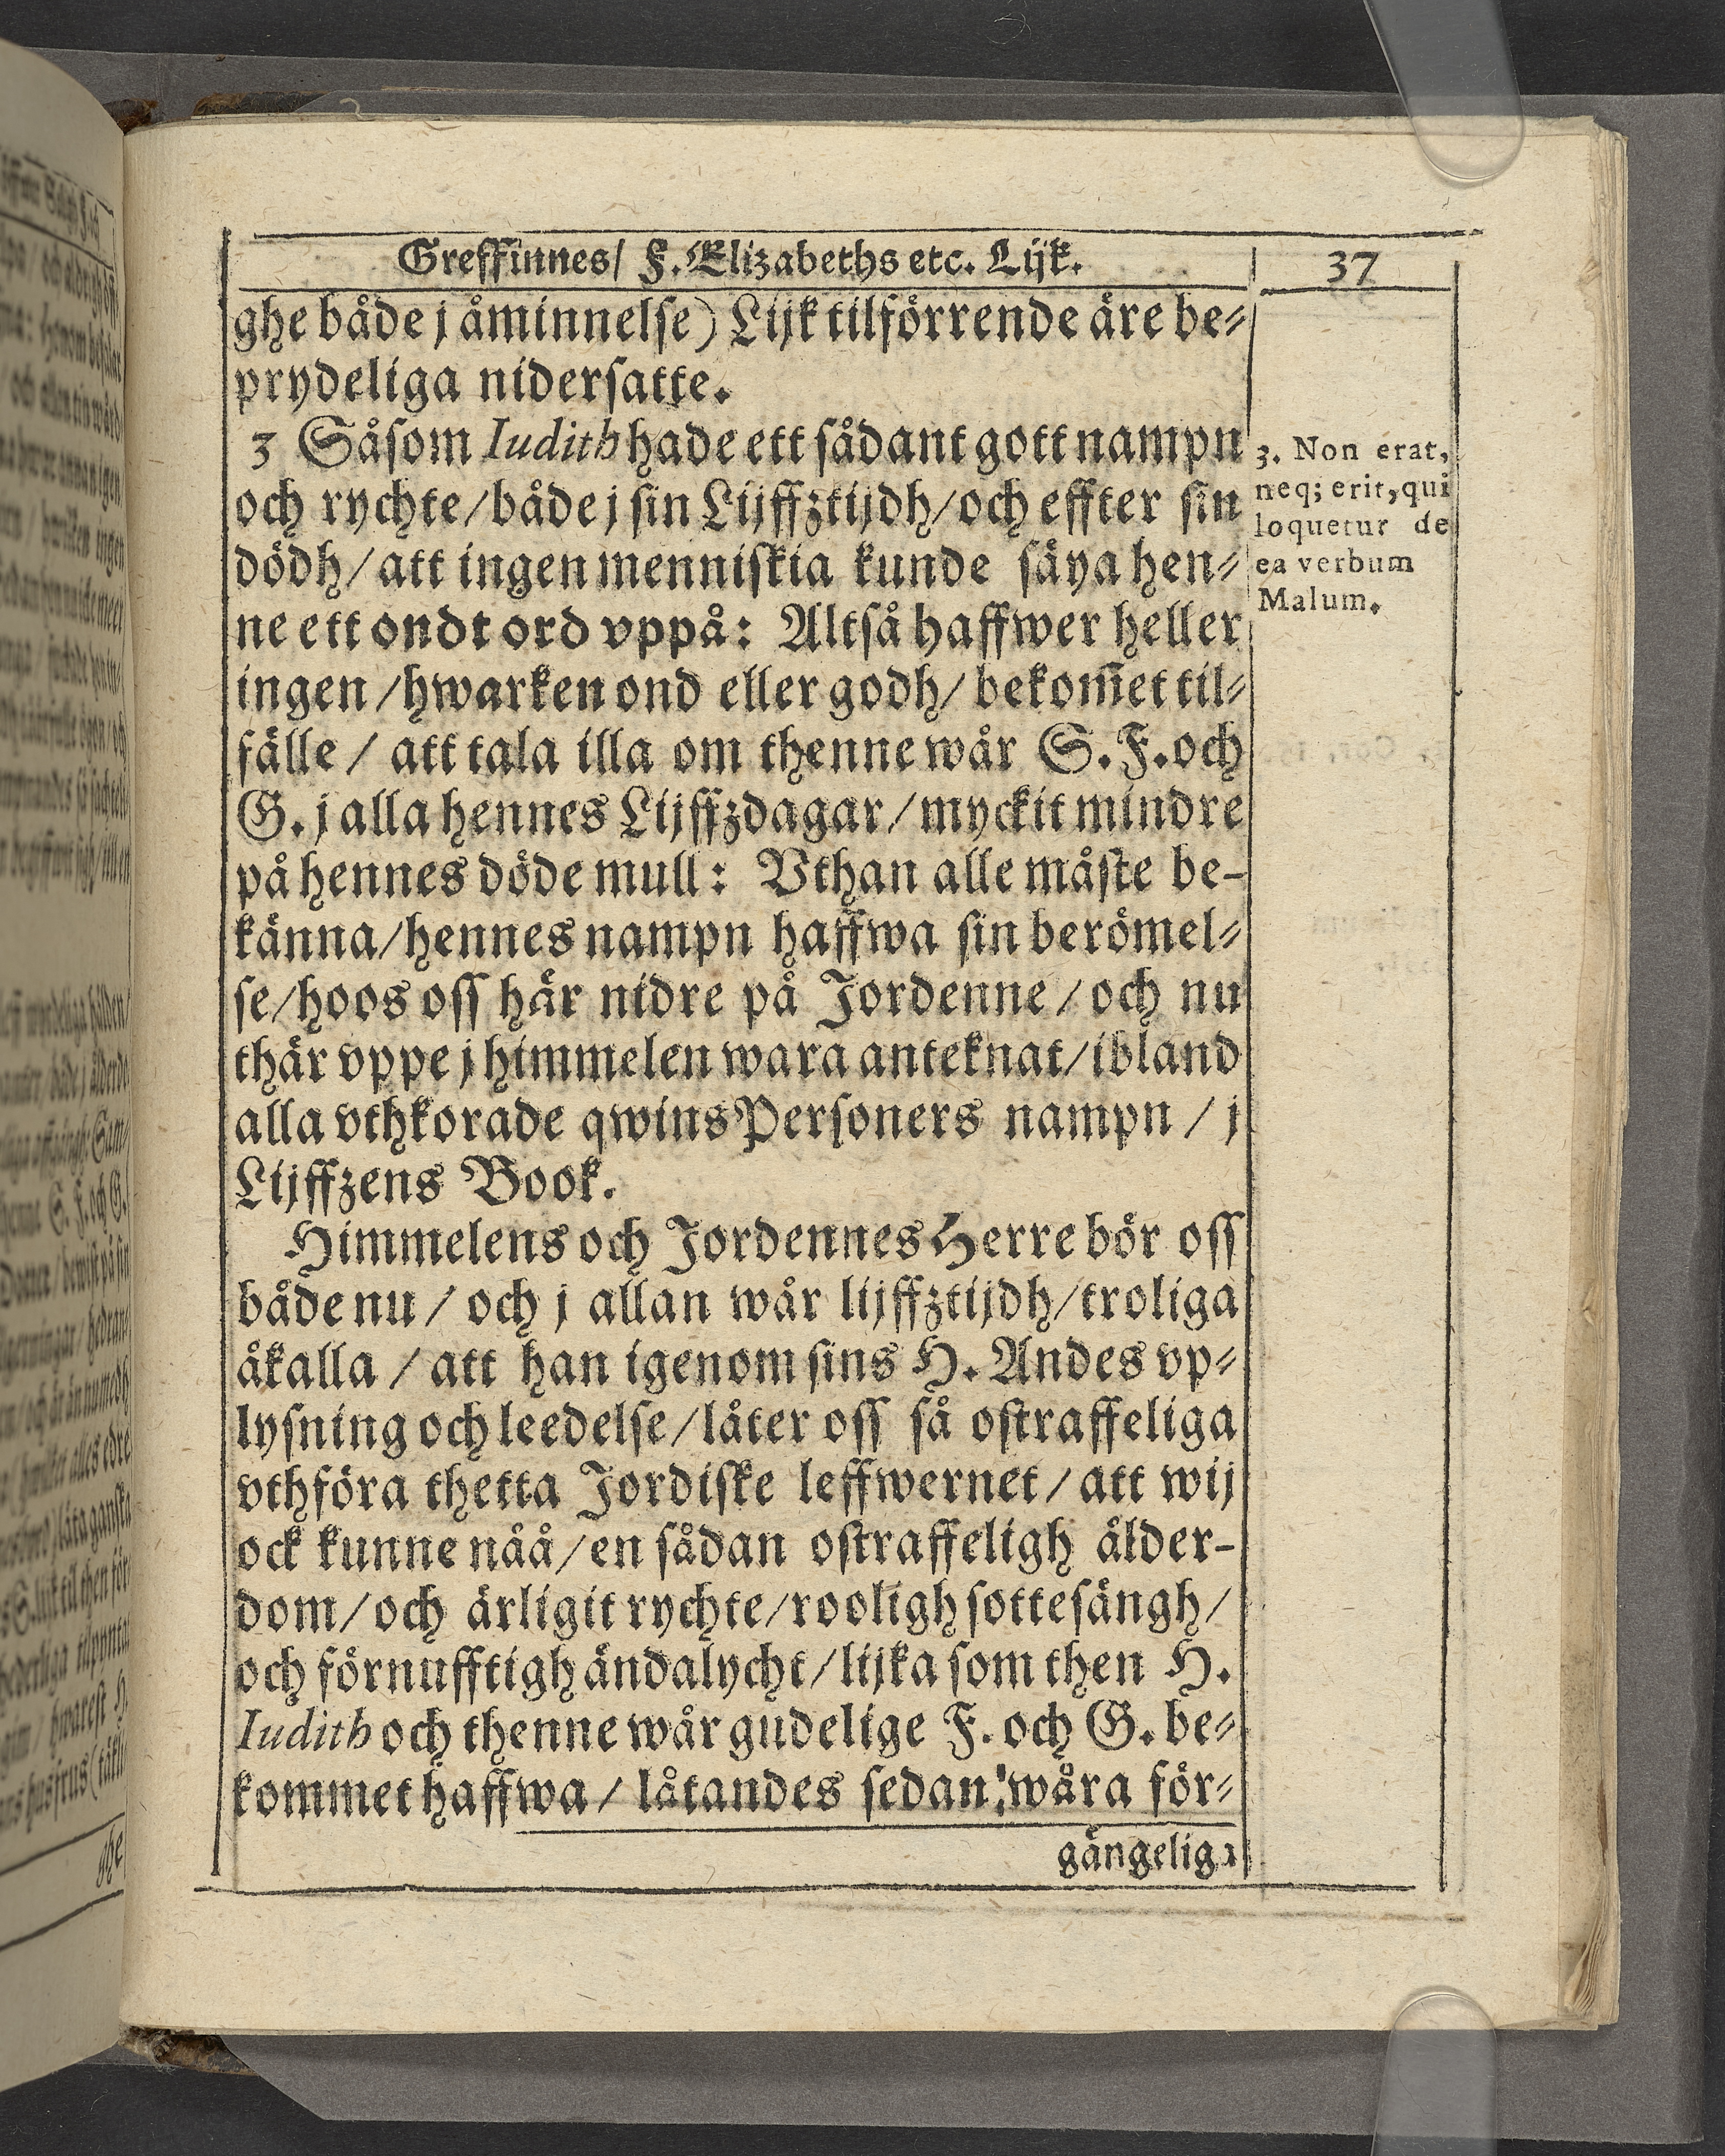 Greffinnes/ F. Elizabeths etc. Lijk.
37
ghe både j åminnelse) Lijk tilförrende äre be-
prydeliga nidersatte.
3 Såsom Iudith hade ett sådant gott nampn
och rychte/både j sin Lijffztijdh/och effter sin
dödh/att ingen menniskia kunde säya hen-
ne ett ondt ord vppå: Altså haffwer heller
ingen/hwarken ond eller godh/ bekom̃et til-
fälle / att tala illa om thenne wår S.F.och
G. j alla hennes Lijffzdagar/myckit mindre
på hennes döde mull: Vthan alle måste be-
känna/hennes nampn haffwa sin berömel-
se/hoos oss här nidre på Jordenne/och nu
thär vppe j himmelen wara anteknat/ibland
alla vthkorade qwinsPersoners nampn / j
Lijffzens Book.
Himmelens och Jordennes Herre bör oss
både nu / och j allan wår lijffztijdh/troliga
åkalla / att han igenom sins H. Andes vp-
lysning och leedelse/låter oss så ostraffeliga
vthföra thetta Jordiske leffwernet/att wij
ock kunne nåå/en sådan ostraffeligh ålder-
dom/och ärligit rychte/rooligh sottesängh/
och förnufftigh ändalycht/lijka som then H.
Iudith och thenne wår gudelige F. och G. be-
kommet haffwa / låtandes sedan! wåra för-
gängeliga
3. Non erat,
neq; erit, qui
loquetur de
ea verbum
Malum.